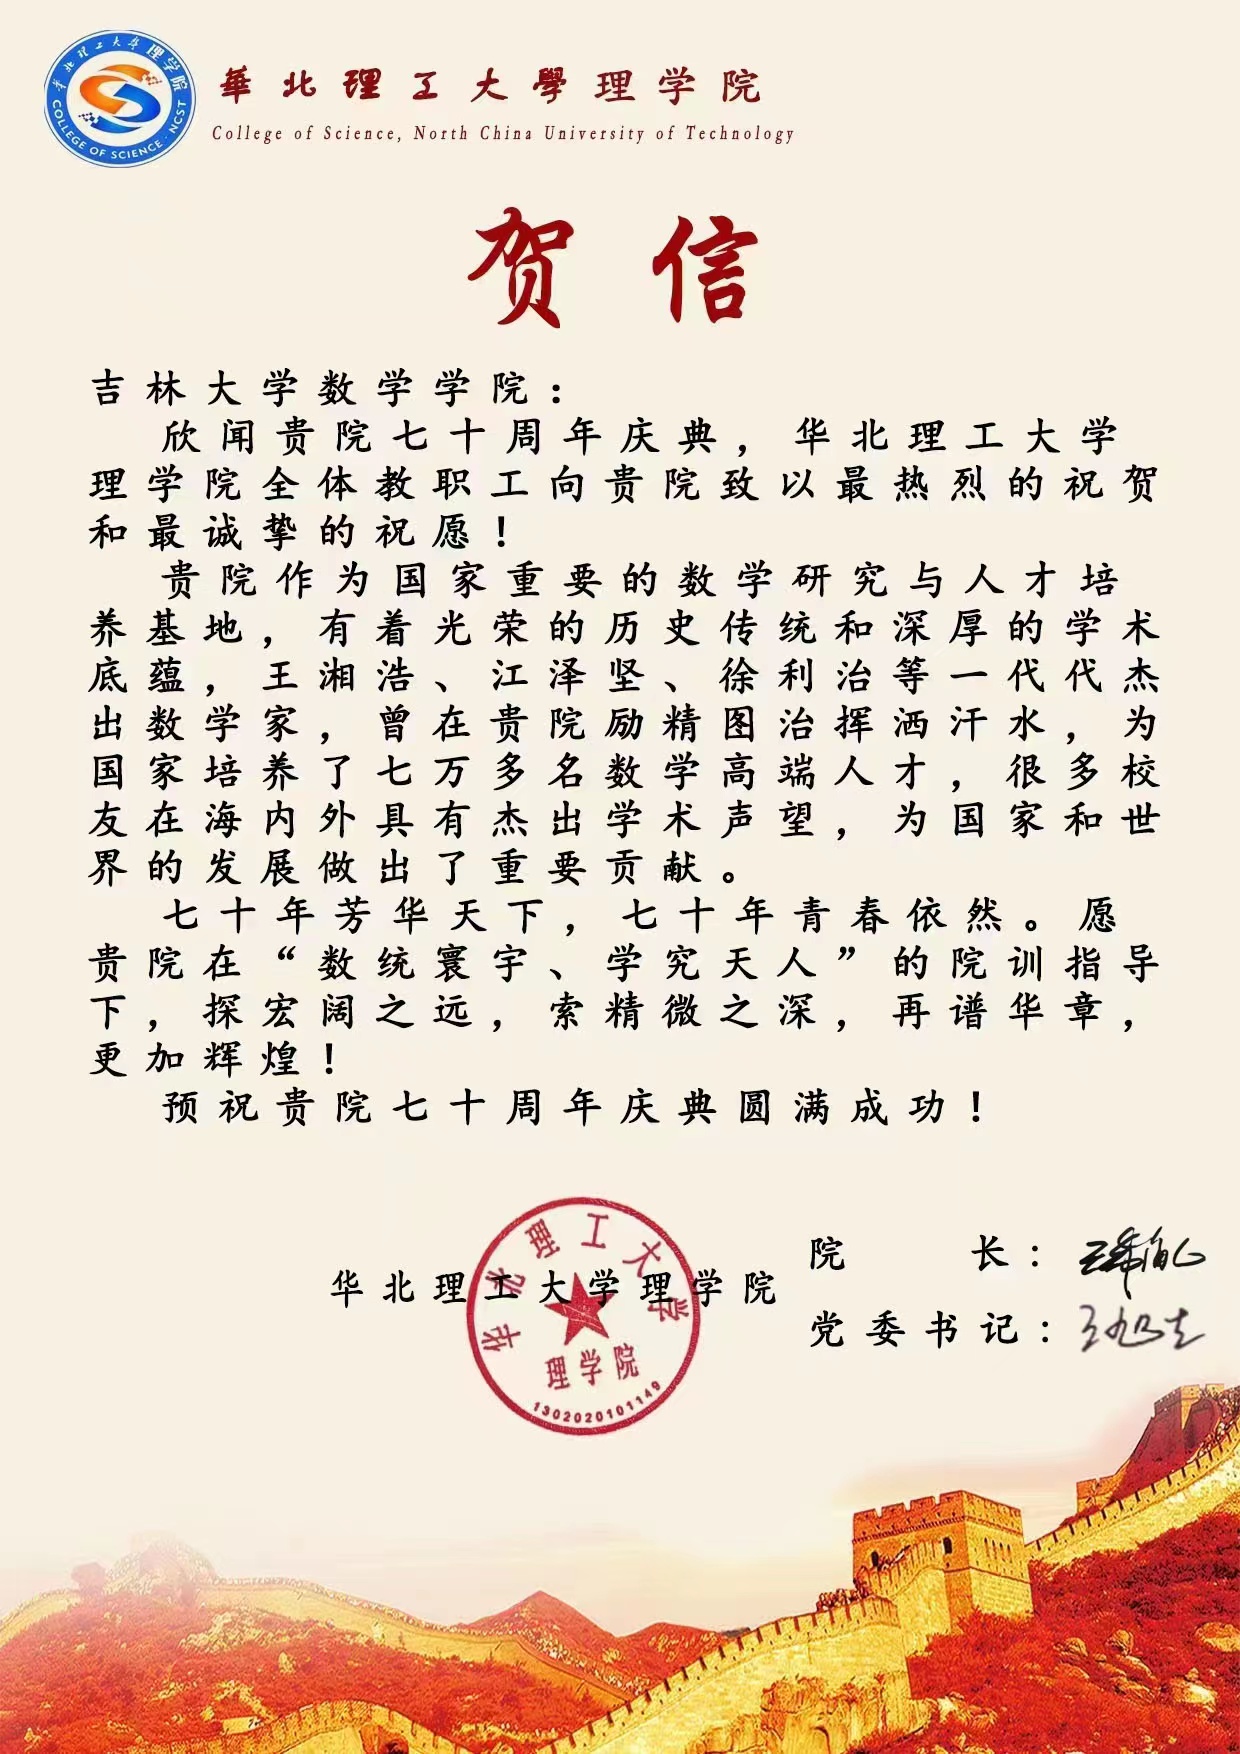 华北理工大学理学院
COLLEGE OF SCIENCE · NCST
華北理工大學理学院
College of Science, North China University of Technology
贺信
吉林大学数学学院：
欣闻贵院七十周年庆典，华北理工大学
理学院全体教职工向贵院致以最热烈的祝贺
和最诚挚的祝愿！
贵院作为国家重要的数学研究与人才培
养基地，有着光荣的历史传统和深厚的学术
底蕴，王湘浩、江泽坚、徐利治等一代代杰
出数学家，曾在贵院励精图治挥洒汗水，为
国家培养了七万多名数学高端人才，很多校
友在海内外具有杰出学术声望，为国家和世
界的发展做出了重要贡献。
七十年芳华天下，七十年青春依然。愿
贵院在“数统寰宇、学究天人”的院训指导
下，探宏阔之远，索精微之深，再谱华章，
更加辉煌！
预祝贵院七十周年庆典圆满成功！
华北理工大学理学院
华北理工大学
理学院
1302020101149
院长：
党委书记：